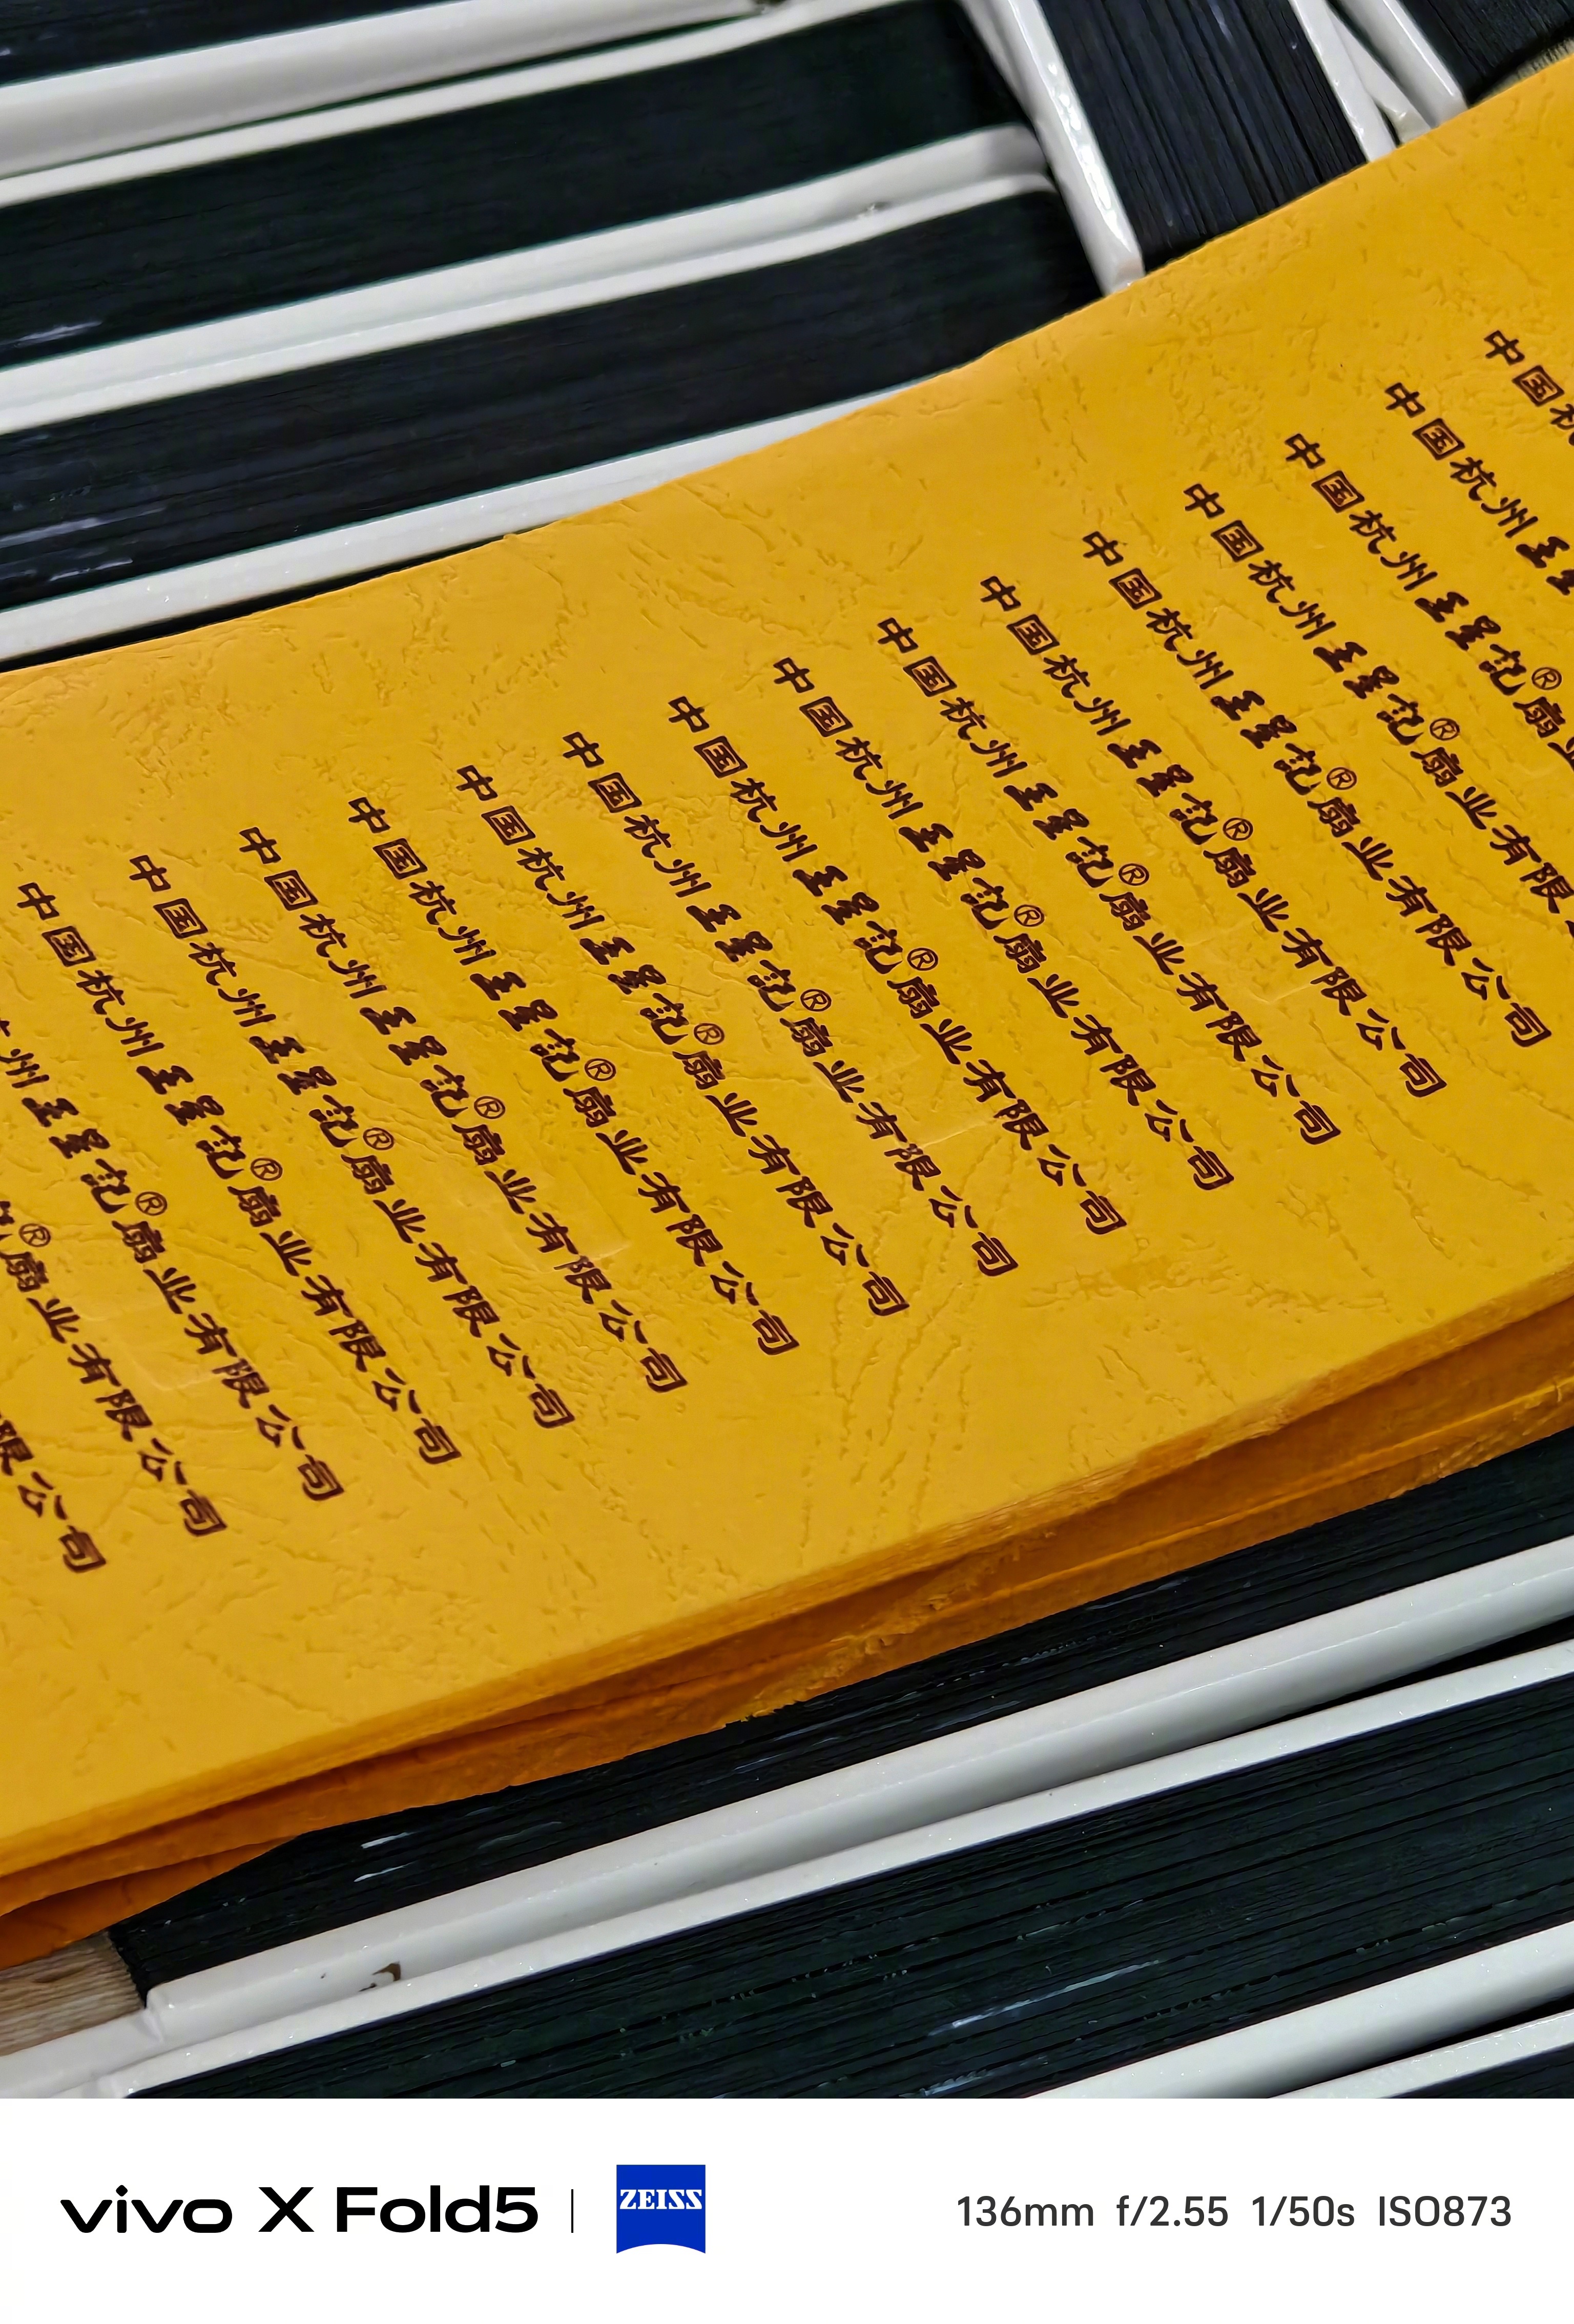 限公司
®扇业有限公司
州王星记®扇业有限公司
中国杭州王星记®扇业有限公司
中国杭州王星记®扇业有限公司
中国杭州王星记®扇业有限公司
中国杭州王星记®扇业有限公司
中国杭州王星记®扇业有限公司
中国杭州王星记®扇业有限公司
中国杭州王星记®扇业有限公司
中国杭州王星记®扇业有限公司
中国杭州王星记®扇业有限公司
中国杭州王星记®扇业有限公司
中国杭州王星记®扇业有限公司
中国杭州王星记®扇业有限
中国杭州王星记®扇
中国杭州王
中国
vivo X Fold5 ZEISS 136mm f/2.55 1/50s ISO873